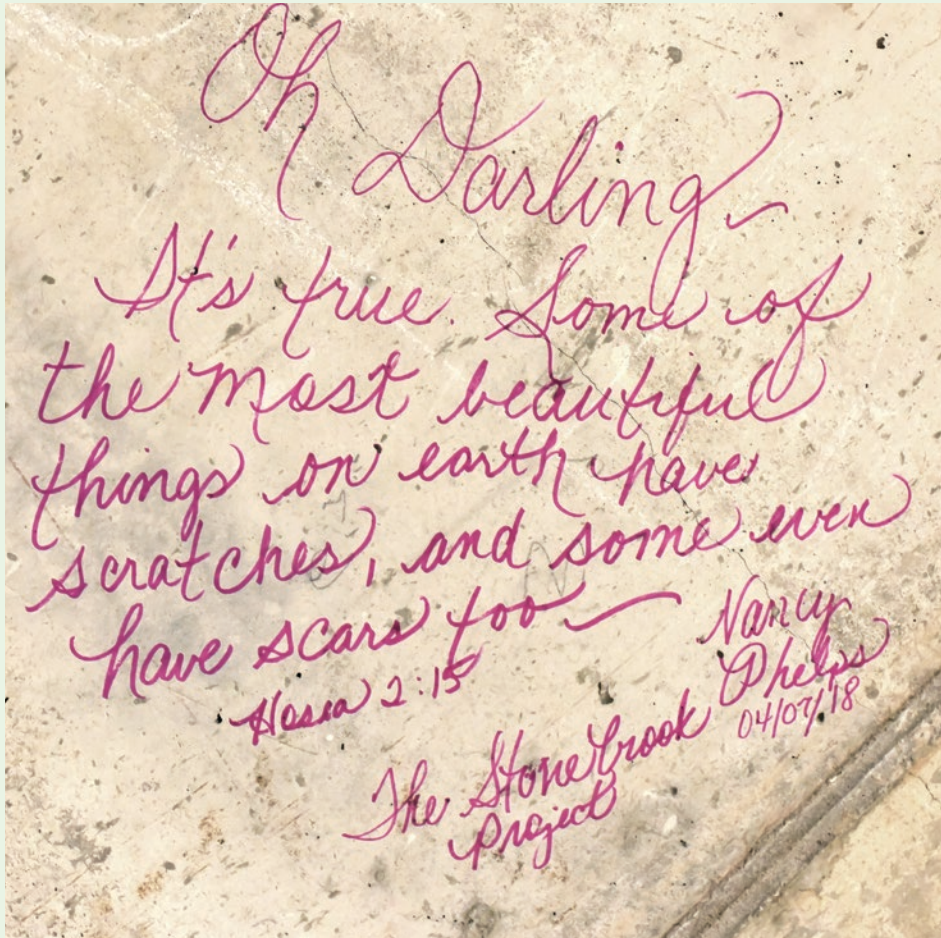 Oh Darling -
It's true. Some of
the most beautiful
things on earth have
scratches, and some even
have scars too —
Hosea 2:15
Nancy
Phelps
04/07/18
The Stonebrook
Project